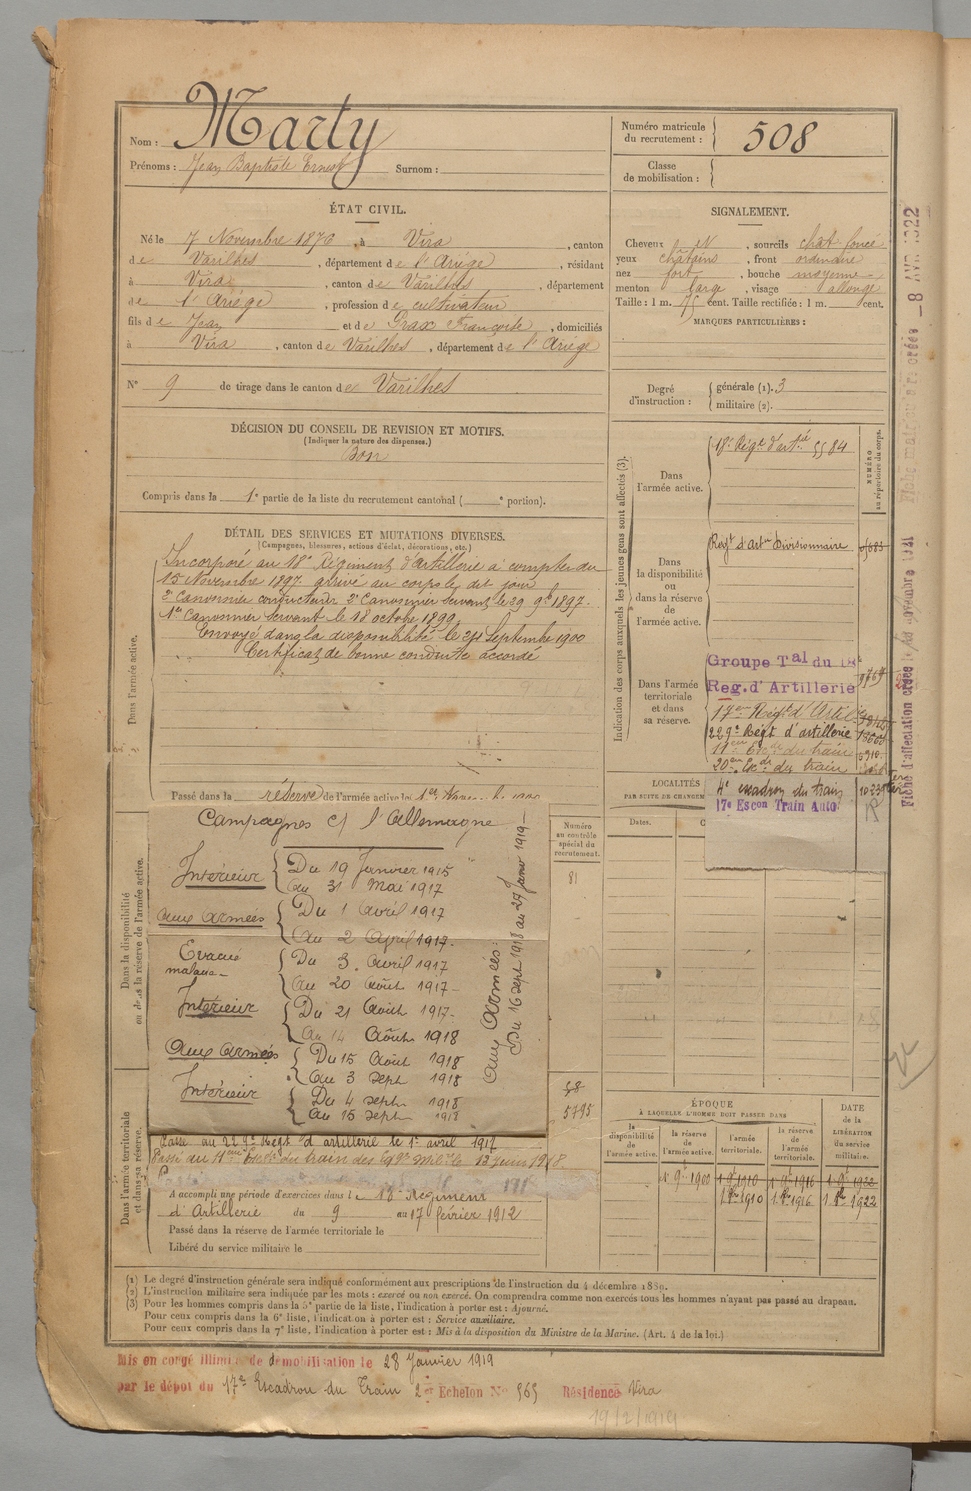 Nom : Marty
Prénoms : Jean Baptiste Ernest Surnom :
Numéro matricule du recrutement : 508
Classe de mobilisation :
ÉTAT CIVIL.
Né le 7 Novembre 1876, à Vira, canton
de Varilhes, département de l'Ariège, résidant
à Vira, canton de Varilhes, département
de l'Ariège, profession de cultivateur
fils de Jean et de Grax Françoise, domiciliés
à Vira, canton de Varilhes, département de l'Ariège
N° 9 de tirage dans le canton de Varilhes
SIGNALEMENT.
Cheveux N, sourcils chat. foncé
yeux châtains, front ordinaire
nez fort, bouche moyenne
menton large, visage allongé
Taille : 1 m. 75 cent. Taille rectifiée : 1 m. cent.
MARQUES PARTICULIÈRES :
Degré d'instruction : générale (1). 3
militaire (2).
DÉCISION DU CONSEIL DE REVISION ET MOTIFS.
(Indiquer la nature des dispenses.)
Bon
Compris dans la 1e partie de la liste du recrutement cantonal ( e portion).
DÉTAIL DES SERVICES ET MUTATIONS DIVERSES.
(Campagnes, blessures, actions d'éclat, décorations, etc.)
Dans l'armée active.
Incorporé au 18e Régiment d'artillerie à compter du
15 Novembre 1897 arrivé au corps le dit jour
2e Canonnier conducteur 2e Canonnier servant le 29 9bre 1897.
1er Canonnier servant le 18 octobre 1899
Envoyé dans la disponibilité le 24 Septembre 1900
Certificat de bonne conduite accordé
Passé dans la réserve de l'armée active le 1er
Dans la disponibilité ou dans la réserve de l'armée active.
Campagnes c/ l'Allemagne
Intérieur Du 19 Janvier 1915
au 31 Mai 1917
aux armées Du 1 avril 1917
au 2 April 1917.
Evacué malade Du 3 avril 1917
au 20 août 1917
Intérieur Du 21 Août 1917
au 14 Août 1918
Aux Armées Du 15 Août 1918
au 3 sept 1918
Intérieur Du 4 sept 1918
au 15 sept 1918
aux Armées :
Du 16 sept 1918 au 27 Janv 1919
Dans l'armée territoriale et dans sa réserve.
Passé au 229e Régt d'artillerie le 1er avril 1917
Passé au 11eme
A accompli une période d'exercices dans le 18e Régiment
d'Artillerie du 9 au 17 février 1912
Passé dans la réserve de l'armée territoriale le
Libéré du service militaire le
Numéro au contrôle spécial du recrutement.
81
58
5795
Indication des corps auxquels les jeunes gens sont affectés (3).
NUMÉRO au répertoire du corps.
Dans l'armée active. 18e Régt d'artie 5584
Dans la disponibilité ou dans la réserve de l'armée active. Regt d'artie Divisionnaire
Dans l'armée territoriale et dans sa réserve.
Groupe Tal du 18e
Reg. d'Artillerie
17eme Régt d'Artil
229e Régt d'artillerie
11eme Esc. du train
20eme Esc. du train
4e escadron du train
17e Escon Train Auto
R
LOCALITÉS
Dates.
ÉPOQUE
À LAQUELLE L'HOMME DOIT PASSER DANS
la disponibilité de l'armée active.
la réserve de l'armée active.
l'armée territoriale.
la réserve de l'armée territoriale.
DATE de la LIBÉRATION du service militaire.
1er 9bre 1900 1 9bre 1910 1 9bre 1916 1 9bre 1922
1 8bre 1910 1 8bre 1916 1 8bre 1922
(1) Le degré d'instruction générale sera indiqué conformément aux prescriptions de l'instruction du 4 décembre 1889.
(2) L'instruction militaire sera indiquée par les mots : exercé ou non exercé. On comprendra comme non exercés tous les hommes n'ayant pas passé au drapeau.
(3) Pour les hommes compris dans la 5e partie de la liste, l'indication à porter est : Ajourné.
Pour ceux compris dans la 6e liste, l'indication à porter est : Service auxiliaire.
Pour ceux compris dans la 7e liste, l'indication à porter est : Mis à la disposition du Ministre de la Marine. (Art. 4 de la loi.)
Mis en congé illimité de démobilisation le 28 Janvier 1919
par le dépôt du 17e Escadron du Train 2er Echelon No 565 Résidence Vira
19/2/1919